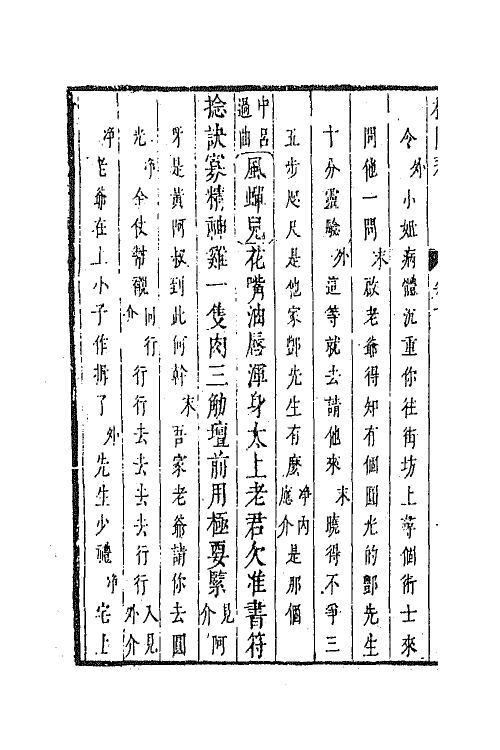 令外小姐病體沉重你往街坊上尋個術士來
問他一問末啟老爺得知有個圓光的鄧先生
十分靈驗外這等就去請他來末曉得不爭三
五步咫尺是他家鄧先生有麽净内應介是那個
中呂過曲風蟬兒花嘴油唇渾身太上老君欠准書符
捻訣寡精神雞一隻肉三觔壇前用極要緊見介阿
呀是黃阿叔到此何幹末吾家老爺請你去圓
光净全仗幫襯同行介行行去去去去行行入見外介
净老爺在上小子作揖了外先生少禮净宅上